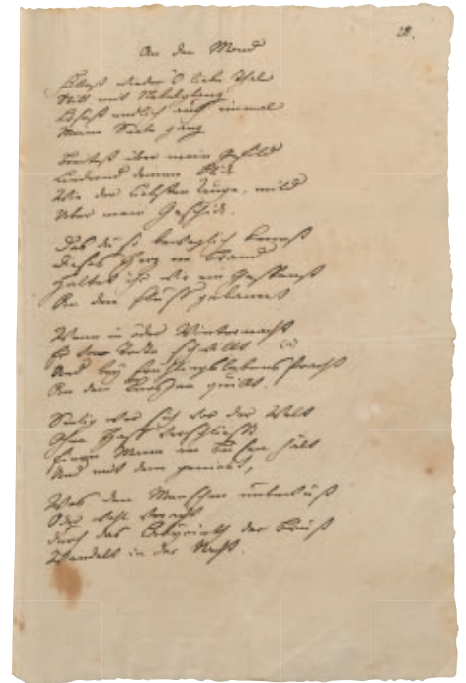 An den Mond
28.
Füllest wieder's liebe Thal
Still mit Nebelglanz
Lösest endlich auch einmal
Meine Seele ganz
Breitest über mein Gefild
Lindernd deinen Blick
Wie der Liebsten Auge, mild
Über mein Geschick.
Das du so beweglich kennst
Dieses Herz im Brand
Haltet ihr wie ein Gespenst
An den Fluss gebannt
Wenn in öder Winternacht
Er vom Todte schwillt
Und bey Frühlingslebens Pracht
An den Knospen quillt.
Seelig wer sich vor der Welt
Ohne Hass verschliesst
Einen Mann am Busen hält
Und mit dem geniesst,
Was den Menschen unbewusst
Oder wohl veracht
Durch das Labyrinth der Brust
Wandelt in der Nacht.